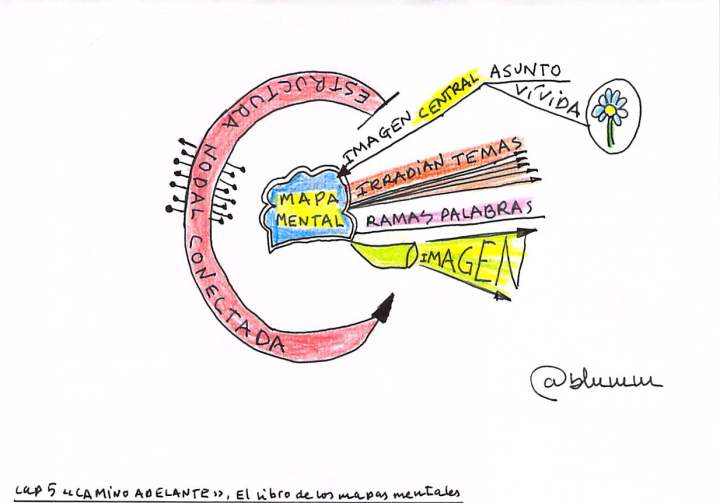 ESTRUCTURA NODAL CONECTADA
IMAGEN CENTRAL
ASUNTO
VÍVIDA
MAPA
MENTAL
IRRADIAN TEMAS
RAMAS PALABRAS
IMAGEN
@blumm
CAP 5 «CAMINO ADELANTE», El libro de los mapas mentales